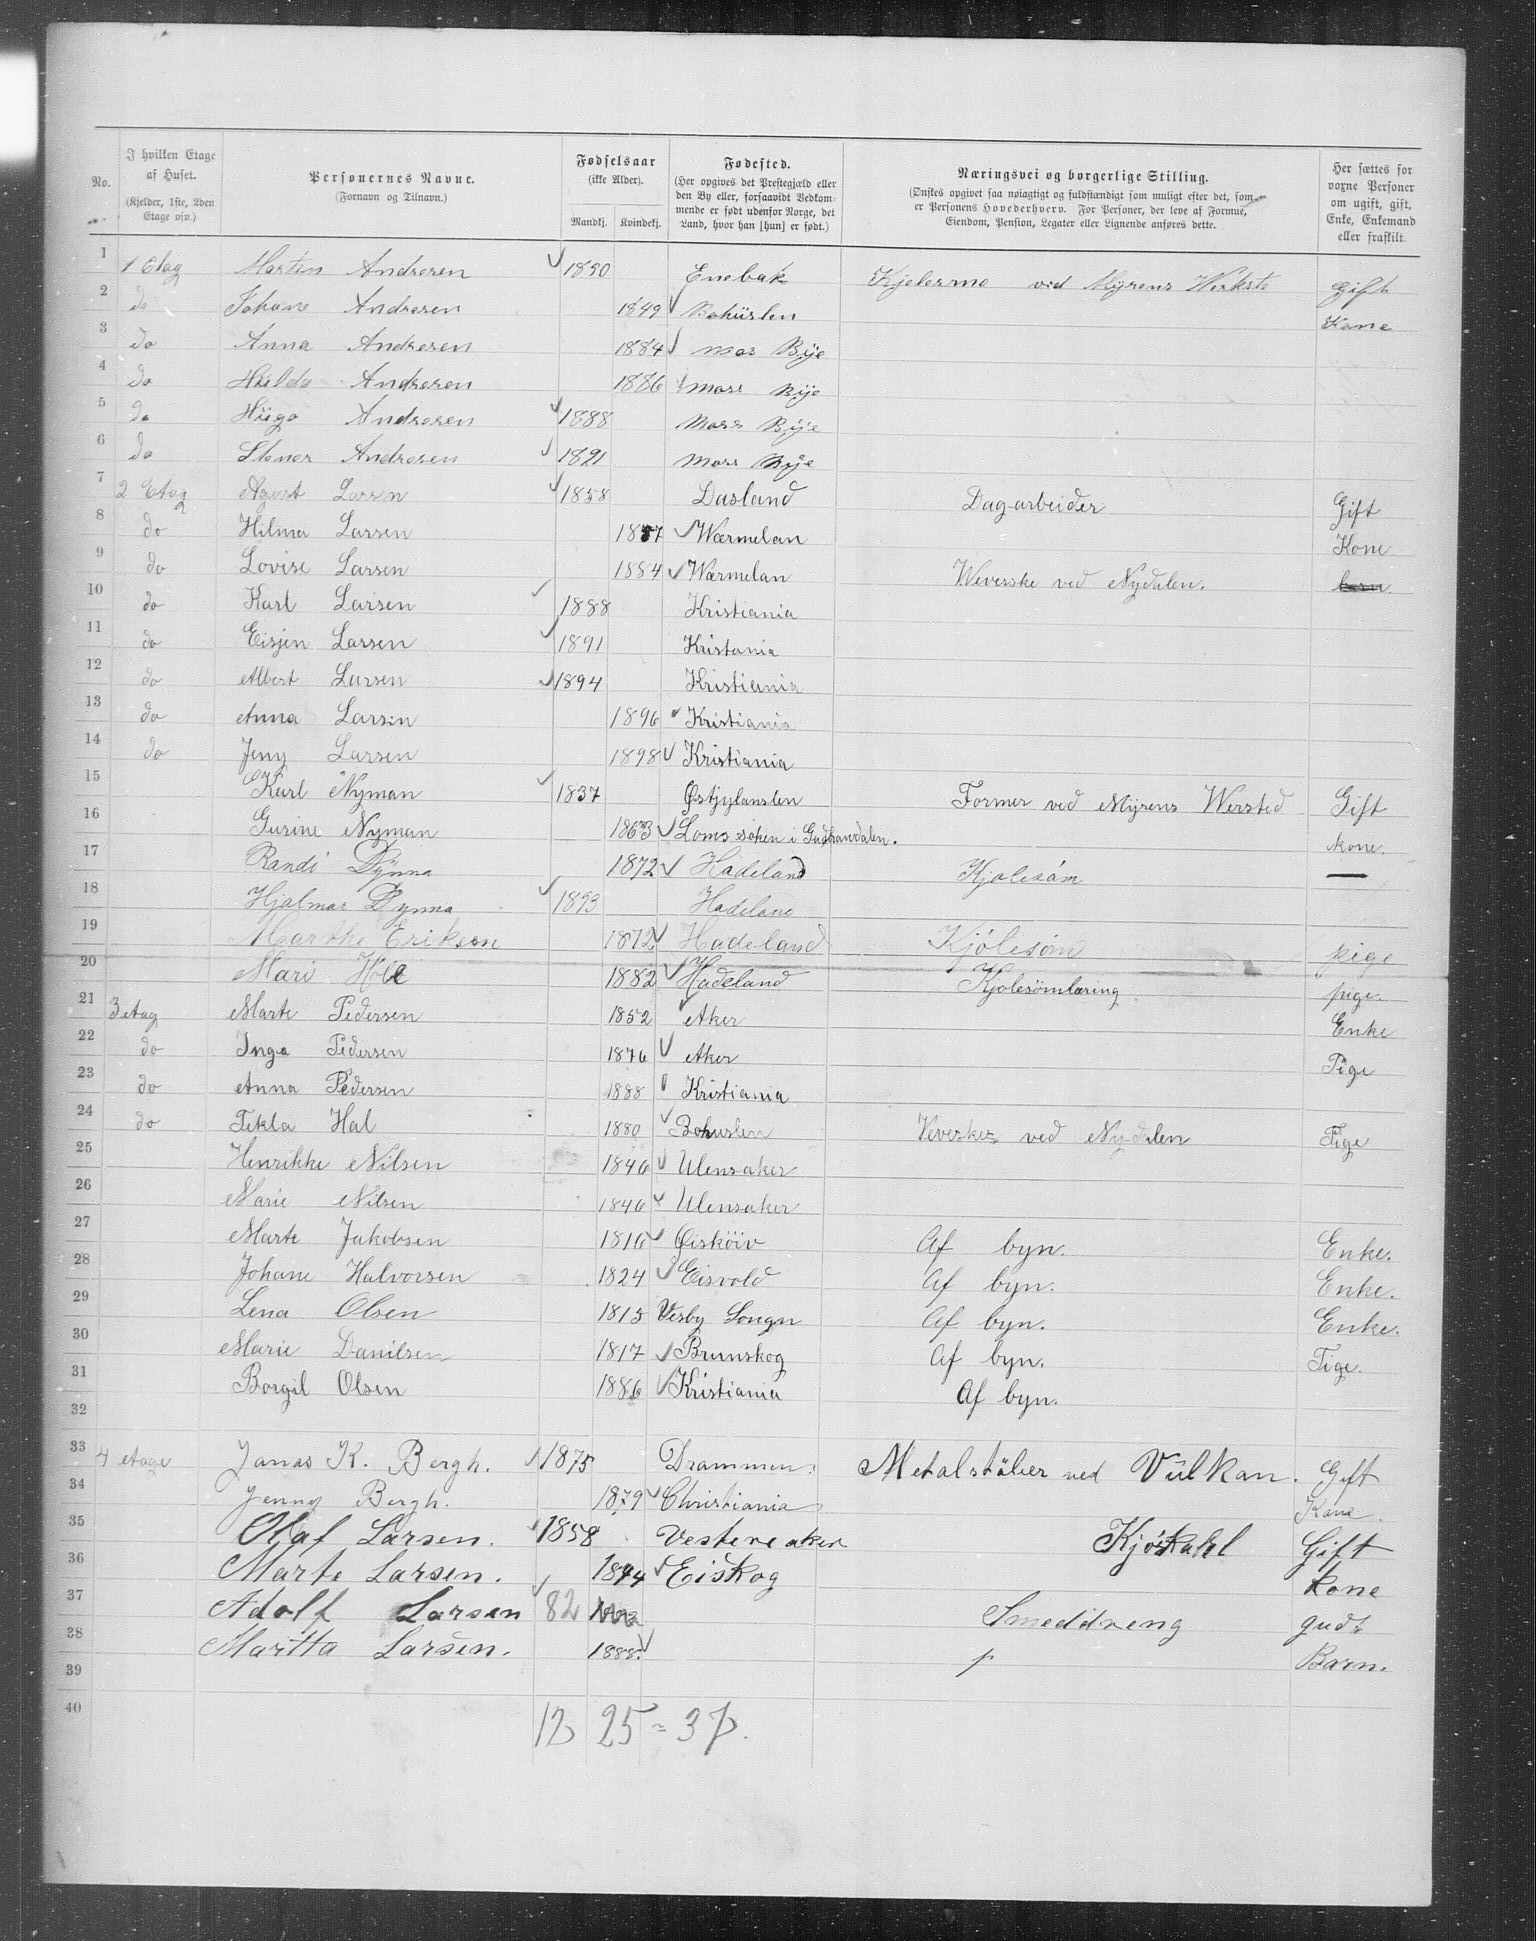 No.
I hvilken Etage af Huset. (Kjelder, 1ste, 2den Etage osv.)
Personernes Navne. (Fornavn og Tilnavn.)
Fødselsaar (ikke Alder). Mandkj. Kvindekj.
Fødested. (Her opgives det Prestegjæld eller den By eller, forsaavidt Vedkommende er født udenfor Norge, det Land, hvor han [hun] er født.)
Næringsvei og borgerlige Stilling. (Ønskes opgivet saa nøiagtigt og fuldstændigt som muligt efter det, som er Personens Hovederhverv. For Personer, der leve af Formue, Eiendom, Pension, Legater eller Lignende anføres dette.
Her sættes for vorne Personer om ugift, gift, Enke, Enkemand eller fraskilt.
1 1 Etag Martin Andresen 1850 Enebak Kjelesmo ved Myrens Werkste gift
2 do Johane Andresen 1849 Bohüslen Kone
3 do Anna Andresen 1884 Mos Bye
4 do Hilda Andresen 1886 Moss Bye
5 do Hügo Andresen 1888 Moss Bye
6 do Andresen 1891 Moss Bye
7 2 Etag Agust Larsen 1858 Dasland Dagarbeider Gift
8 do Hilma Larsen 1857 Wærmelan Kone
9 do Lovise Larsen 1884 Wærmelan Weverske ved Nydalen. barn
10 do Karl Larsen 1888 Kristiania
11 do Eisjen Larsen 1891 Kristania
12 do Albert Larsen 1894 Kristiania
13 do Anna Larsen 1896 Kristiania
14 do Jeny Larsen 1898 Kristiania
15 Karl Nyman 1837 Østjylanslen Former ved Myrens Wersted Gift
16 Gurine Nyman 1863 Loms soken i Gudbrandalen. kone.
17 Randi Dynna 1872 Hadeland Kjolesöm —
18 Hjalmar Dynna 1893 Hadeland
19 Marthe Erikson 1872 Hadeland Kjólesöm pige
20 Mari Hole 1882 Hadeland Kjolesömlæring pige
21 3 etag Marte Pedersen 1852 Aker Enke
22 do Inga Pedersen 1876 Aker Pige
23 do Anna Pedersen 1888 Kristiania
24 do Tekla Hal 1880 Bohuslen Veverske ved Nydalen Pige
25 Henrikke Nilsen 1846 Ulensaker
26 Marie Nilsen 1846 Ulensaker
27 Marte Jakobsen 1816 Øisköiv Af byn. Enke.
28 Johane Halvorsen 1824 Eisvold Af byn. Enke.
29 Lena Olsen 1815 Vesby Songn Af byn. Enke.
30 Marie Danilsen 1817 Brunskog Af byn. Pige.
31 Borgil Olsen 1886 Kristiania Af byn.
32
33 4 etage Janas K. Bergh. 1875 Drammen. Metalstöber ved Vülkan. Gift
34 Jenny Bergh. 1879 Christiania Kone.
35 Olaf Larsen. 1858 Vestere aker Gift
36 Marte Larsen. 1844 Eiskog kone
37 Adolf Larsen 82 Smeddreng
38 Martta Larsen. 1888. Barn.
39
40
12 25 = 37.